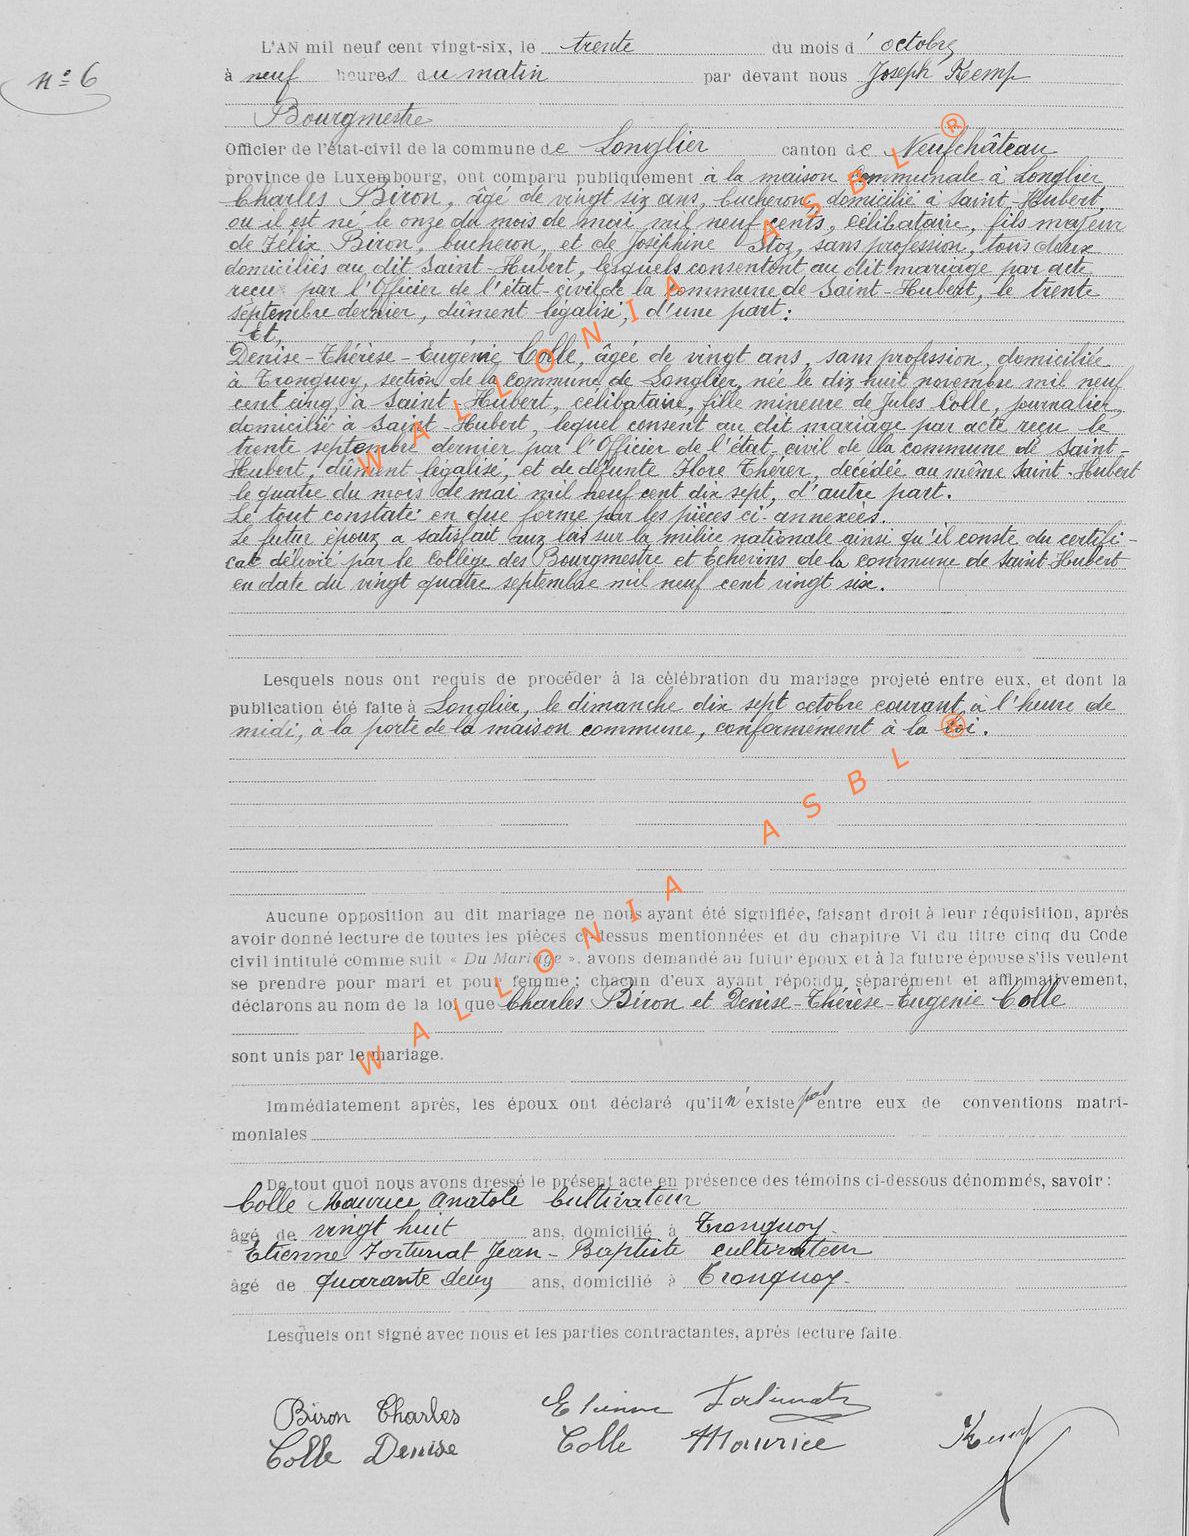 L'AN mil neuf cent vingt-six, le trente du mois d'octobre
n° 6
à neuf heures du matin par devant nous Joseph Kemp
Bourgmestre
Officier de l'état-civil de la commune de Longlier canton de Neufchâteau
province de Luxembourg, ont comparu publiquement à la maison communale à Longlier
Charles Biron, âgé de vingt six ans, bucheron, domicilié à Saint-Hubert,
ou il est né le onze du mois de mai mil neuf cents, célibataire, fils majeur
de Félix Biron, bucheron, et de Joséphine Stoz, sans profession, tous deux
domiciliés au dit Saint-Hubert, lesquels consentent au dit mariage par acte
reçu par l'Officier de l'état-civil de la commune de Saint-Hubert, le trente
septembre dernier, dûment légalisé, d'une part;
Et,
Denise-Thérèse-Eugénie Colle, âgée de vingt ans, sans profession, domiciliée
à Tronquoy, section de la commune de Longlier, née le dix huit novembre mil neuf
cent cinq, à Saint-Hubert, célibataire, fille mineure de Jules Colle, journalier,
domicilié à Saint-Hubert, lequel consent au dit mariage par acte reçu le
trente septembre dernier par l'Officier de l'état civil de la commune de Saint-
Hubert, dûment légalisé, et de défunte Flore Thérer, décédée au même Saint-Hubert
le quatre du mois de mai mil neuf cent dix sept, d'autre part.
Le tout constaté en due forme par les pièces ci-annexées.
Le futur époux a satisfait aux lois sur la milice nationale ainsi qu'il conste du certifi-
cat délivré par le Collège des Bourgmestre et Echevins de la commune de Saint Hubert
en date du vingt quatre septembre mil neuf cent vingt six.
Lesquels nous ont requis de procéder à la célébration du mariage projeté entre eux, et dont la
publication été faite à Longlier, le dimanche dix sept octobre courant, à l'heure de
midi, à la porte de la maison commune, conformément à la loi.
Aucune opposition au dit mariage ne nous ayant été signifiée, faisant droit à leur réquisition, après
avoir donné lecture de toutes les pièces ci-dessus mentionnées et du chapitre VI du titre cinq du Code
civil intitulé comme suit « Du Mariage », avons demandé au futur époux et à la future épouse s'ils veulent
se prendre pour mari et pour femme; chacun d'eux ayant répondu séparément et affirmativement,
déclarons au nom de la loi que Charles Biron et Denise-Thérèse-Eugénie Colle
sont unis par le mariage.
Immédiatement après, les époux ont déclaré qu'il n'existe pas entre eux de conventions matri-
moniales
De tout quoi nous avons dressé le présent acte en présence des témoins ci-dessous dénommés, savoir:
Colle Maurice Anatole Cultivateur
âgé de vingt huit ans, domicilié à Tronquoy.
Etienne Fortunat Jean-Baptiste cultivateur
âgé de quarante deux ans, domicilié à Tronquoy.
Lesquels ont signé avec nous et les parties contractantes, après lecture faite.
Biron Charles Etienne Fortunat
Colle Denise Colle Maurice Kemp
WALLONIA ASBL ®
WALLONIA ASBL ®